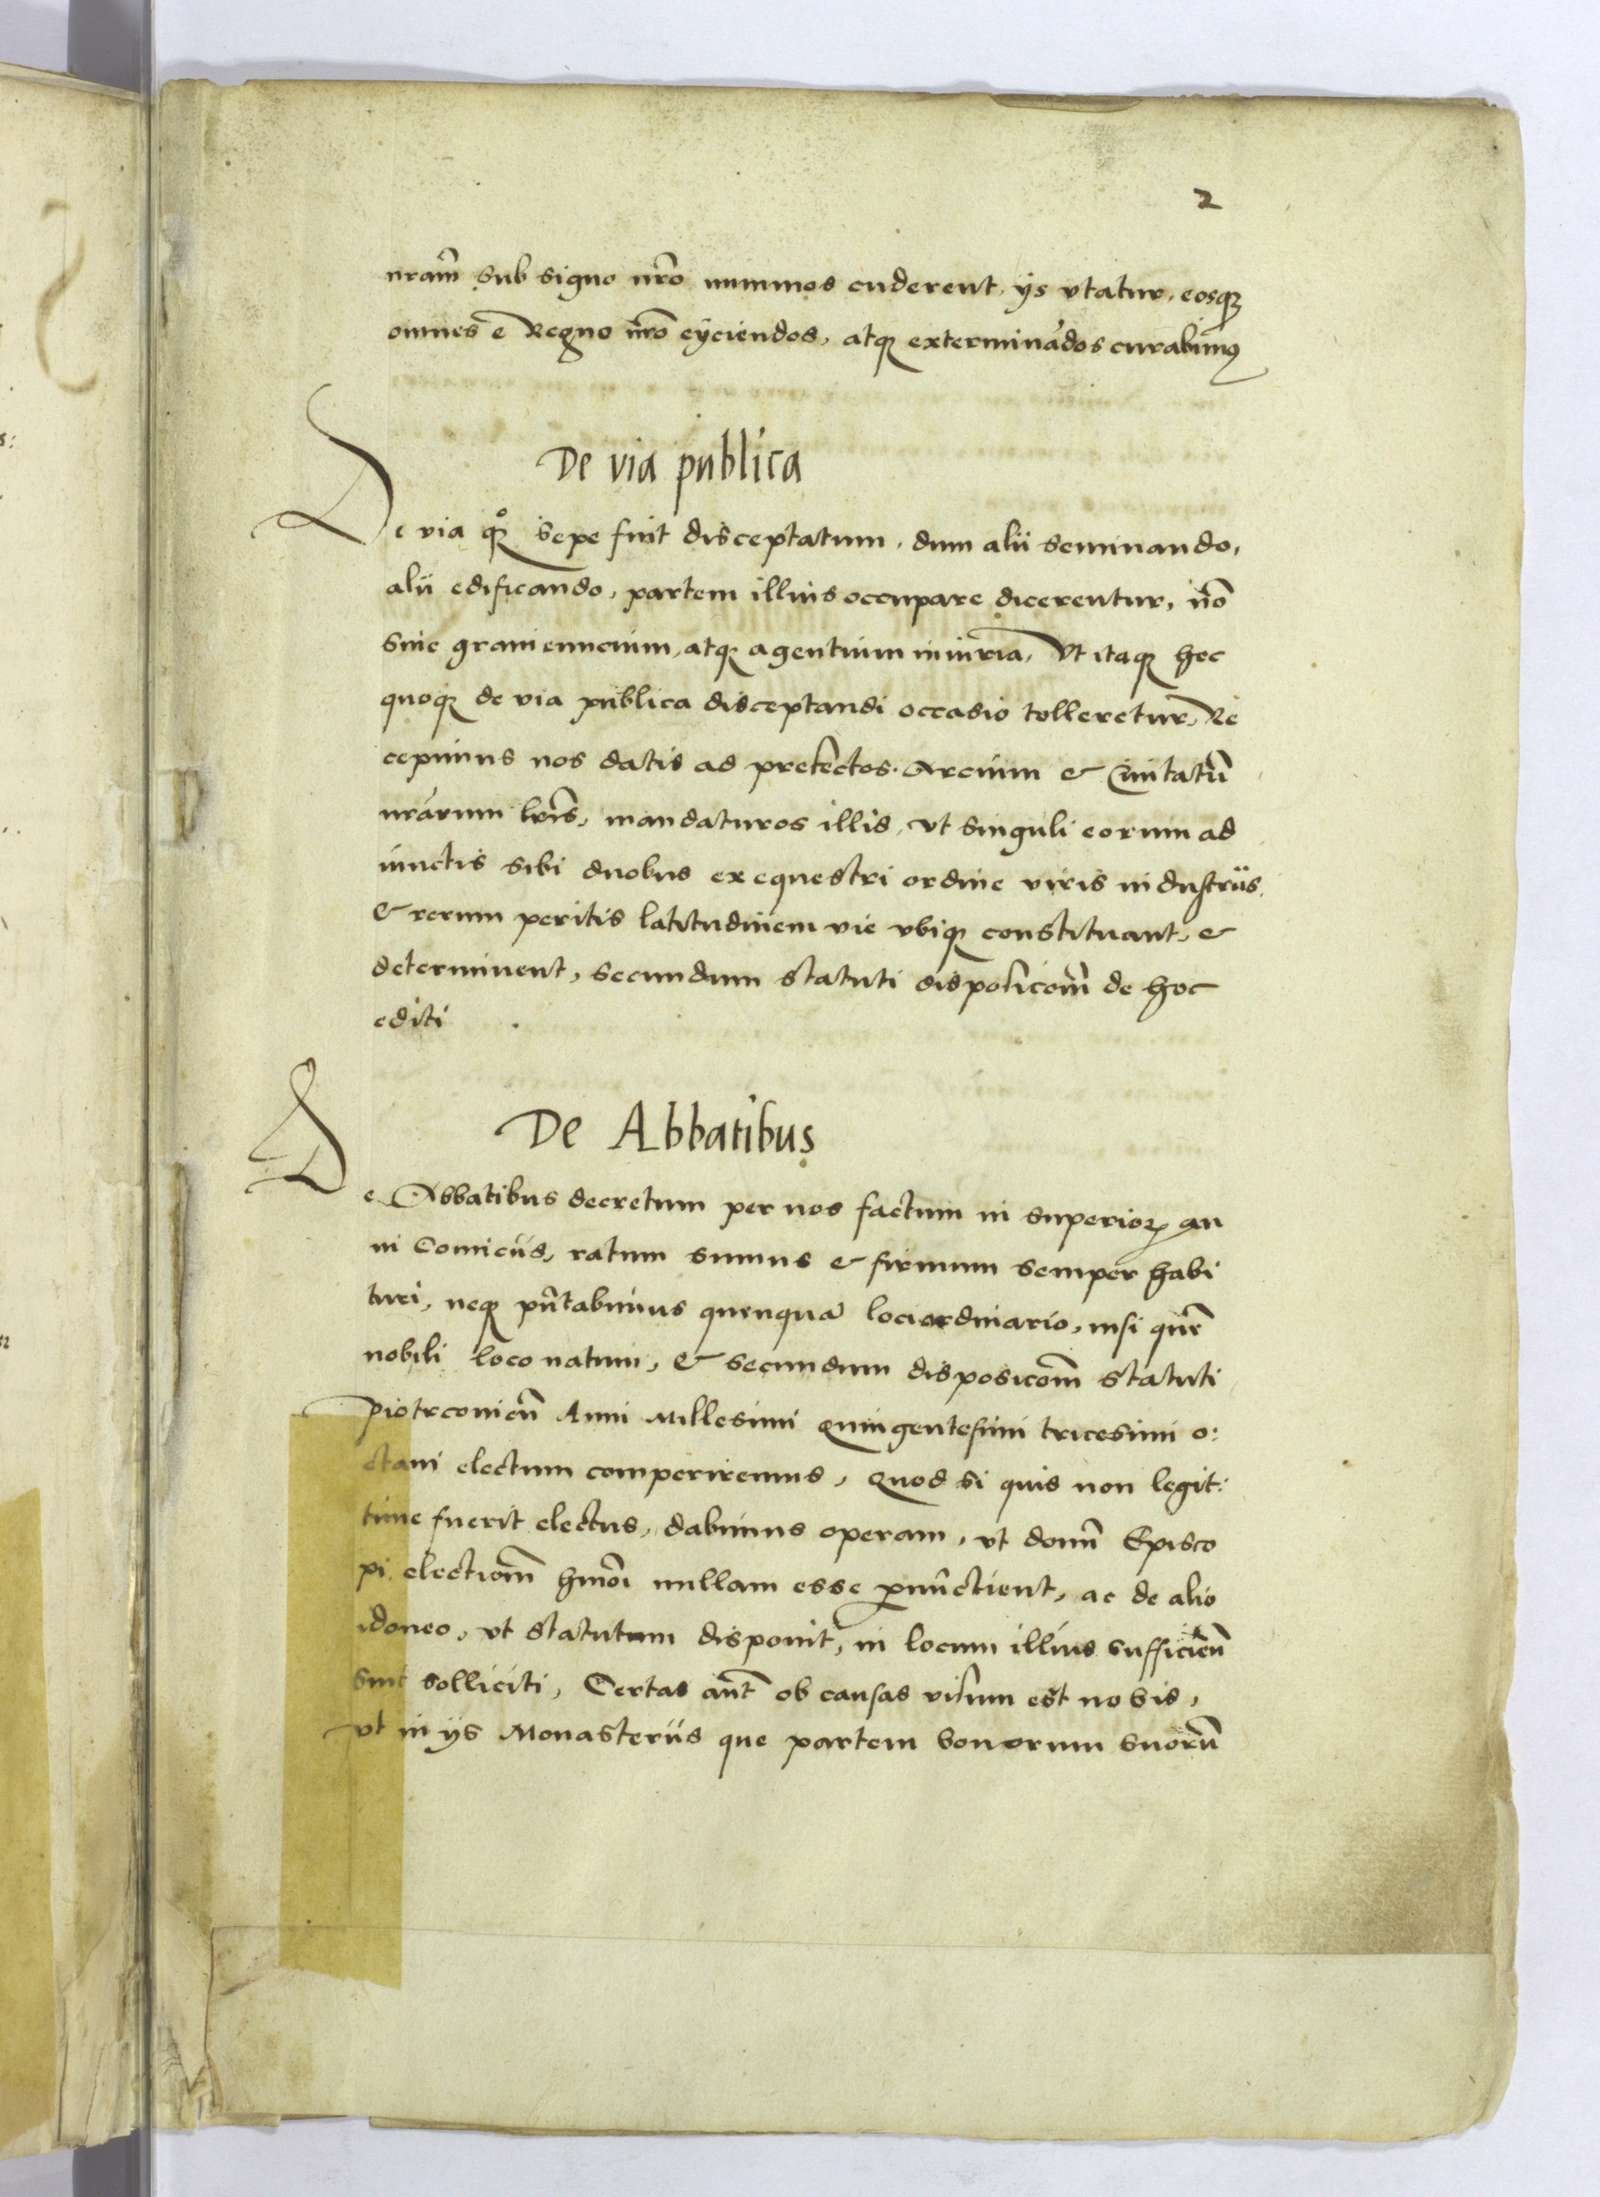 2
nram̃ sub signo nr̃o nummos cuderent, ijs vtatur, eosq
omnes e Regno nr̃o eyciendos, atq exterminãdos curabimus
De via publica
De via qº sepe fuit disceptatum, dum alii seminando,
alii edificando, partem illius occupare dicerentur, nõ
sine grani emencium, atq agentium iniuria, Vt itaq hec
quoq de via publica disceptandi occasio tolleretur, Re
cepimus nos datis ad prefectos Arcium & Ciuitatũ
nrarum lr̃is, mandaturos illis, vt singuli eorum ad
iunctis sibi duobus ex equestri ordine viris industriis
& rerum peritis latitudinem vie vbiq constituant, &
determinent, secundum statuti disposicom̃ de hoc
editi
De Abbatibus
De Abbatibus decretum per nos factum in superior an
ni Comiciis, ratum sumus & firmum semper habi
turi, neq pñtabimus quenquã loci ordinario, nisi quẽ
nobili loco natum, & secundum disposicom̃ statuti
Piotrconieñ Anni Millesimi Quingentesimi tricesimi o:
ctaui electum comperiremus, Quod si quis non legit:
time fuerit electus, dabimus operam, vt domĩ Episco
pi electiom̃ hmõi nullam esse pnũctient, ac de alio
idoneo, vt statutum disponit, in locum illius sufficieñ
sint solliciti, Certas aũt ob causas visum est nobis,
vt in ijs Monasteriis que partem bonorum suorũ